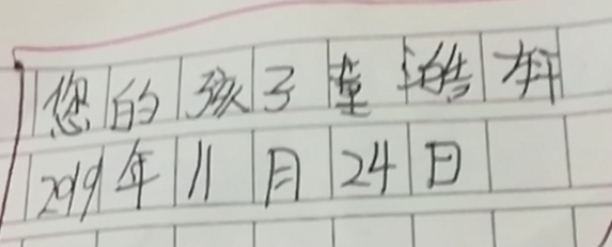 您的孩子童皓轩
2019年11月24日